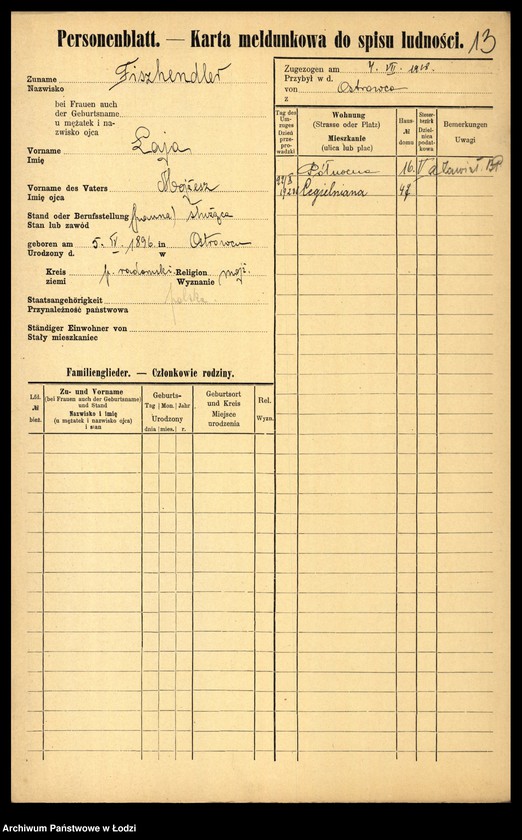 Personenblatt. — Karta meldunkowa do spisu ludności. 13
Zuname Fiszhendler
Nazwisko
bei Frauen auch
der Geburtsname
u mężatek i na-
zwisko ojca
Vorname Łaja
Imię
Vorname des Vaters Mojżesz
Imię ojca
Stand oder Berufsstellung (panna) służąca
Stan lub zawód
geboren am 5. IV. 1896 in Ostrowcu
Urodzony d. w
Kreis p. radomski Religion mojż.
ziemi Wyznanie
Staatsangehörigkeit polska
Przynależność państwowa
Ständiger Einwohner von
Stały mieszkaniec
Familienglieder. — Członkowie rodziny.
Lfd. № bież.
Zu- und Vorname
(bei Frauen auch der Geburtsname)
und Stand
Nazwisko i imię
(u mężatek i nazwisko ojca)
i stan
Geburts-
Tag Mon. Jahr
Urodzony
dnia mies. r.
Geburtsort
und Kreis
Miejsce
urodzenia
Rel.
Wyzn.
Zugezogen am 7. VII. 1918.
Przybył w d.
von Ostrowca
z
Tag des
Um-
zuges
Dzień
prze-
pro-
wadzki
Wohnung
(Strasse oder Platz)
Mieszkanie
(ulica lub plac)
Haus-
№
domu
Steuer-
bezirk
Dziel-
nica
podat-
kowa
Bemerkungen
Uwagi
Północna 16. V
Cegielniana 47
Archiwum Państwowe w Łodzi